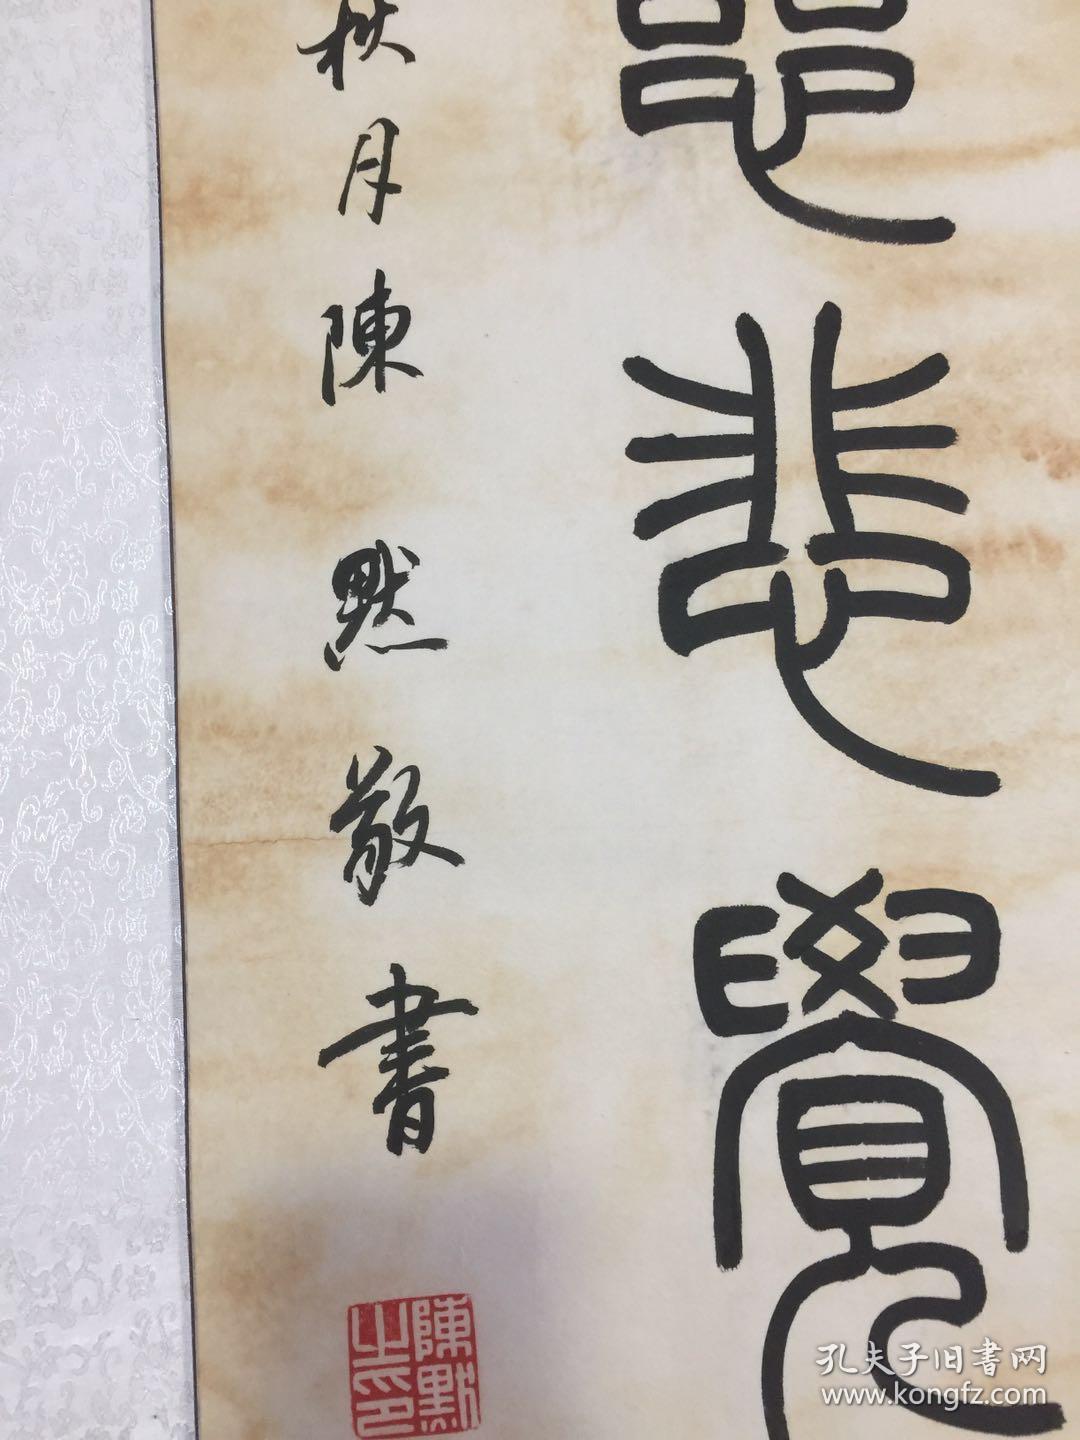 悲覺
秋月陳默敬書
陳默之印
孔夫子旧書网
www.kongfz.com